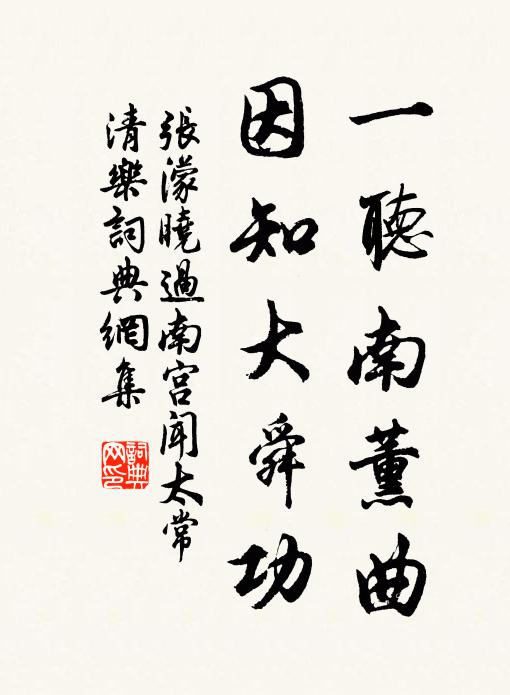 一聽南薰曲
因知大舜功
張濛曉過南宮聞太常
清樂詞典網集
詞典网印